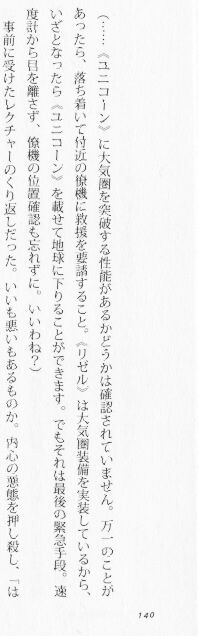 （……《ユニコーン》に大気圏を突破する性能があるかどうかは確認されていません。万一のことが
あったら、落ち着いて付近の僚機に救援を要請すること。《リゼル》は大気圏装備を実装しているから、
いざとなったら《ユニコーン》を載せて地球に下りることができます。でもそれは最後の緊急手段。速
度計から目を離さず、僚機の位置確認も忘れずに。いいわね？）
事前に受けたレクチャーのくり返しだった。いいも悪いもあるものか。内心の悪態を押し殺し、「は
140